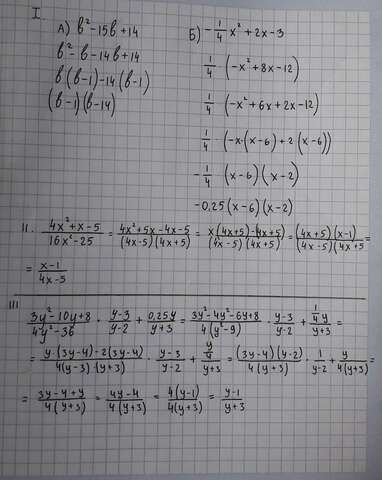 I.
А) b² - 15b + 14
b² - b - 14b + 14
b(b-1) - 14(b-1)
(b-1)(b-14)
Б) -1/4 x² + 2x - 3
1/4 (-x² + 8x - 12)
1/4 (-x² + 6x + 2x - 12)
1/4 · (-x·(x-6) + 2(x-6))
-1/4 · (x-6)(x-2)
-0,25(x-6)(x-2)
II. (4x² + x - 5)/(16x² - 25) = (4x² + 5x - 4x - 5)/((4x-5)(4x+5)) = (x(4x+5) - (4x+5))/((4x-5)(4x+5)) = ((4x+5)(x-1))/((4x-5)(4x+5)) =
= (x-1)/(4x-5)
III
(3y² - 10y + 8)/(4y² - 36) · (y-3)/(y-2) + (0,25y)/(y+3) = (3y² - 4y² - 6y + 8)/(4(y² - 9)) · (y-3)/(y-2) + (1/4 y)/(y+3) =
= (y·(3y-4) - 2(3y-4))/(4(y-3)·(y+3)) · (y-3)/(y-2) + (y/4)/(y+3) = ((3y-4)(y-2))/(4(y+3)) · 1/(y-2) + y/(4(y+3)) =
= (3y-4+y)/(4(y+3)) = (4y-4)/(4(y+3)) = (4(y-1))/(4(y+3)) = (y-1)/(y+3)